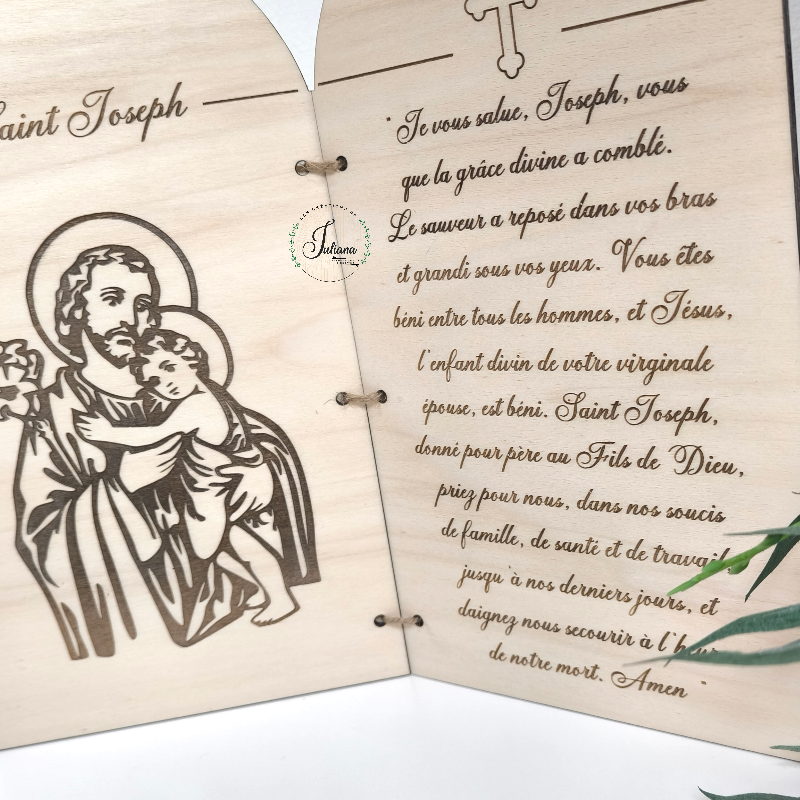 aint Joseph
Juliana
" Je vous salue, Joseph, vous
que la grâce divine a comblé.
Le sauveur a reposé dans vos bras
et grandi sous vos yeux. Vous êtes
béni entre tous les hommes, et Jésus,
l'enfant divin de votre virginale
épouse, est béni. Saint Joseph,
donné pour père au Fils de Dieu,
priez pour nous, dans nos soucis
de famille, de santé et de travail,
jusqu'à nos derniers jours, et
daignez nous secourir à l'heure
de notre mort. Amen "